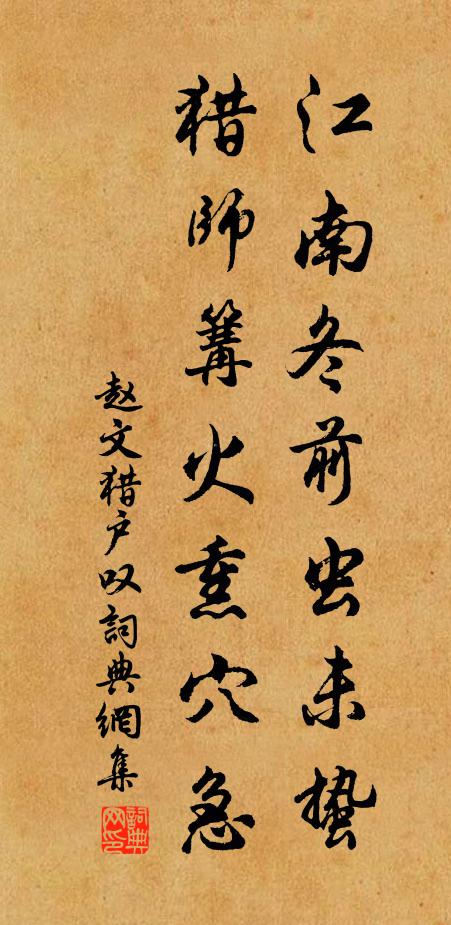 江南冬前虫未蛰
猎師篝火熏穴急
赵文猎户叹詞典網集
詞典网印